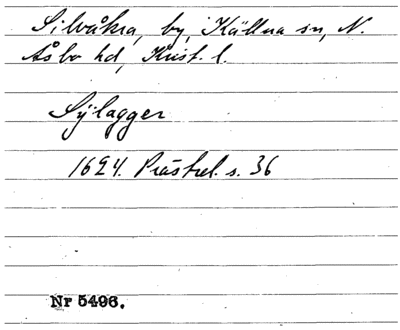 Silvåkra, by, Källna sn, N.
Åsbo hd, Krist. l.
Sÿlagger
1624. Prästrel. s. 36
Nr 5496.